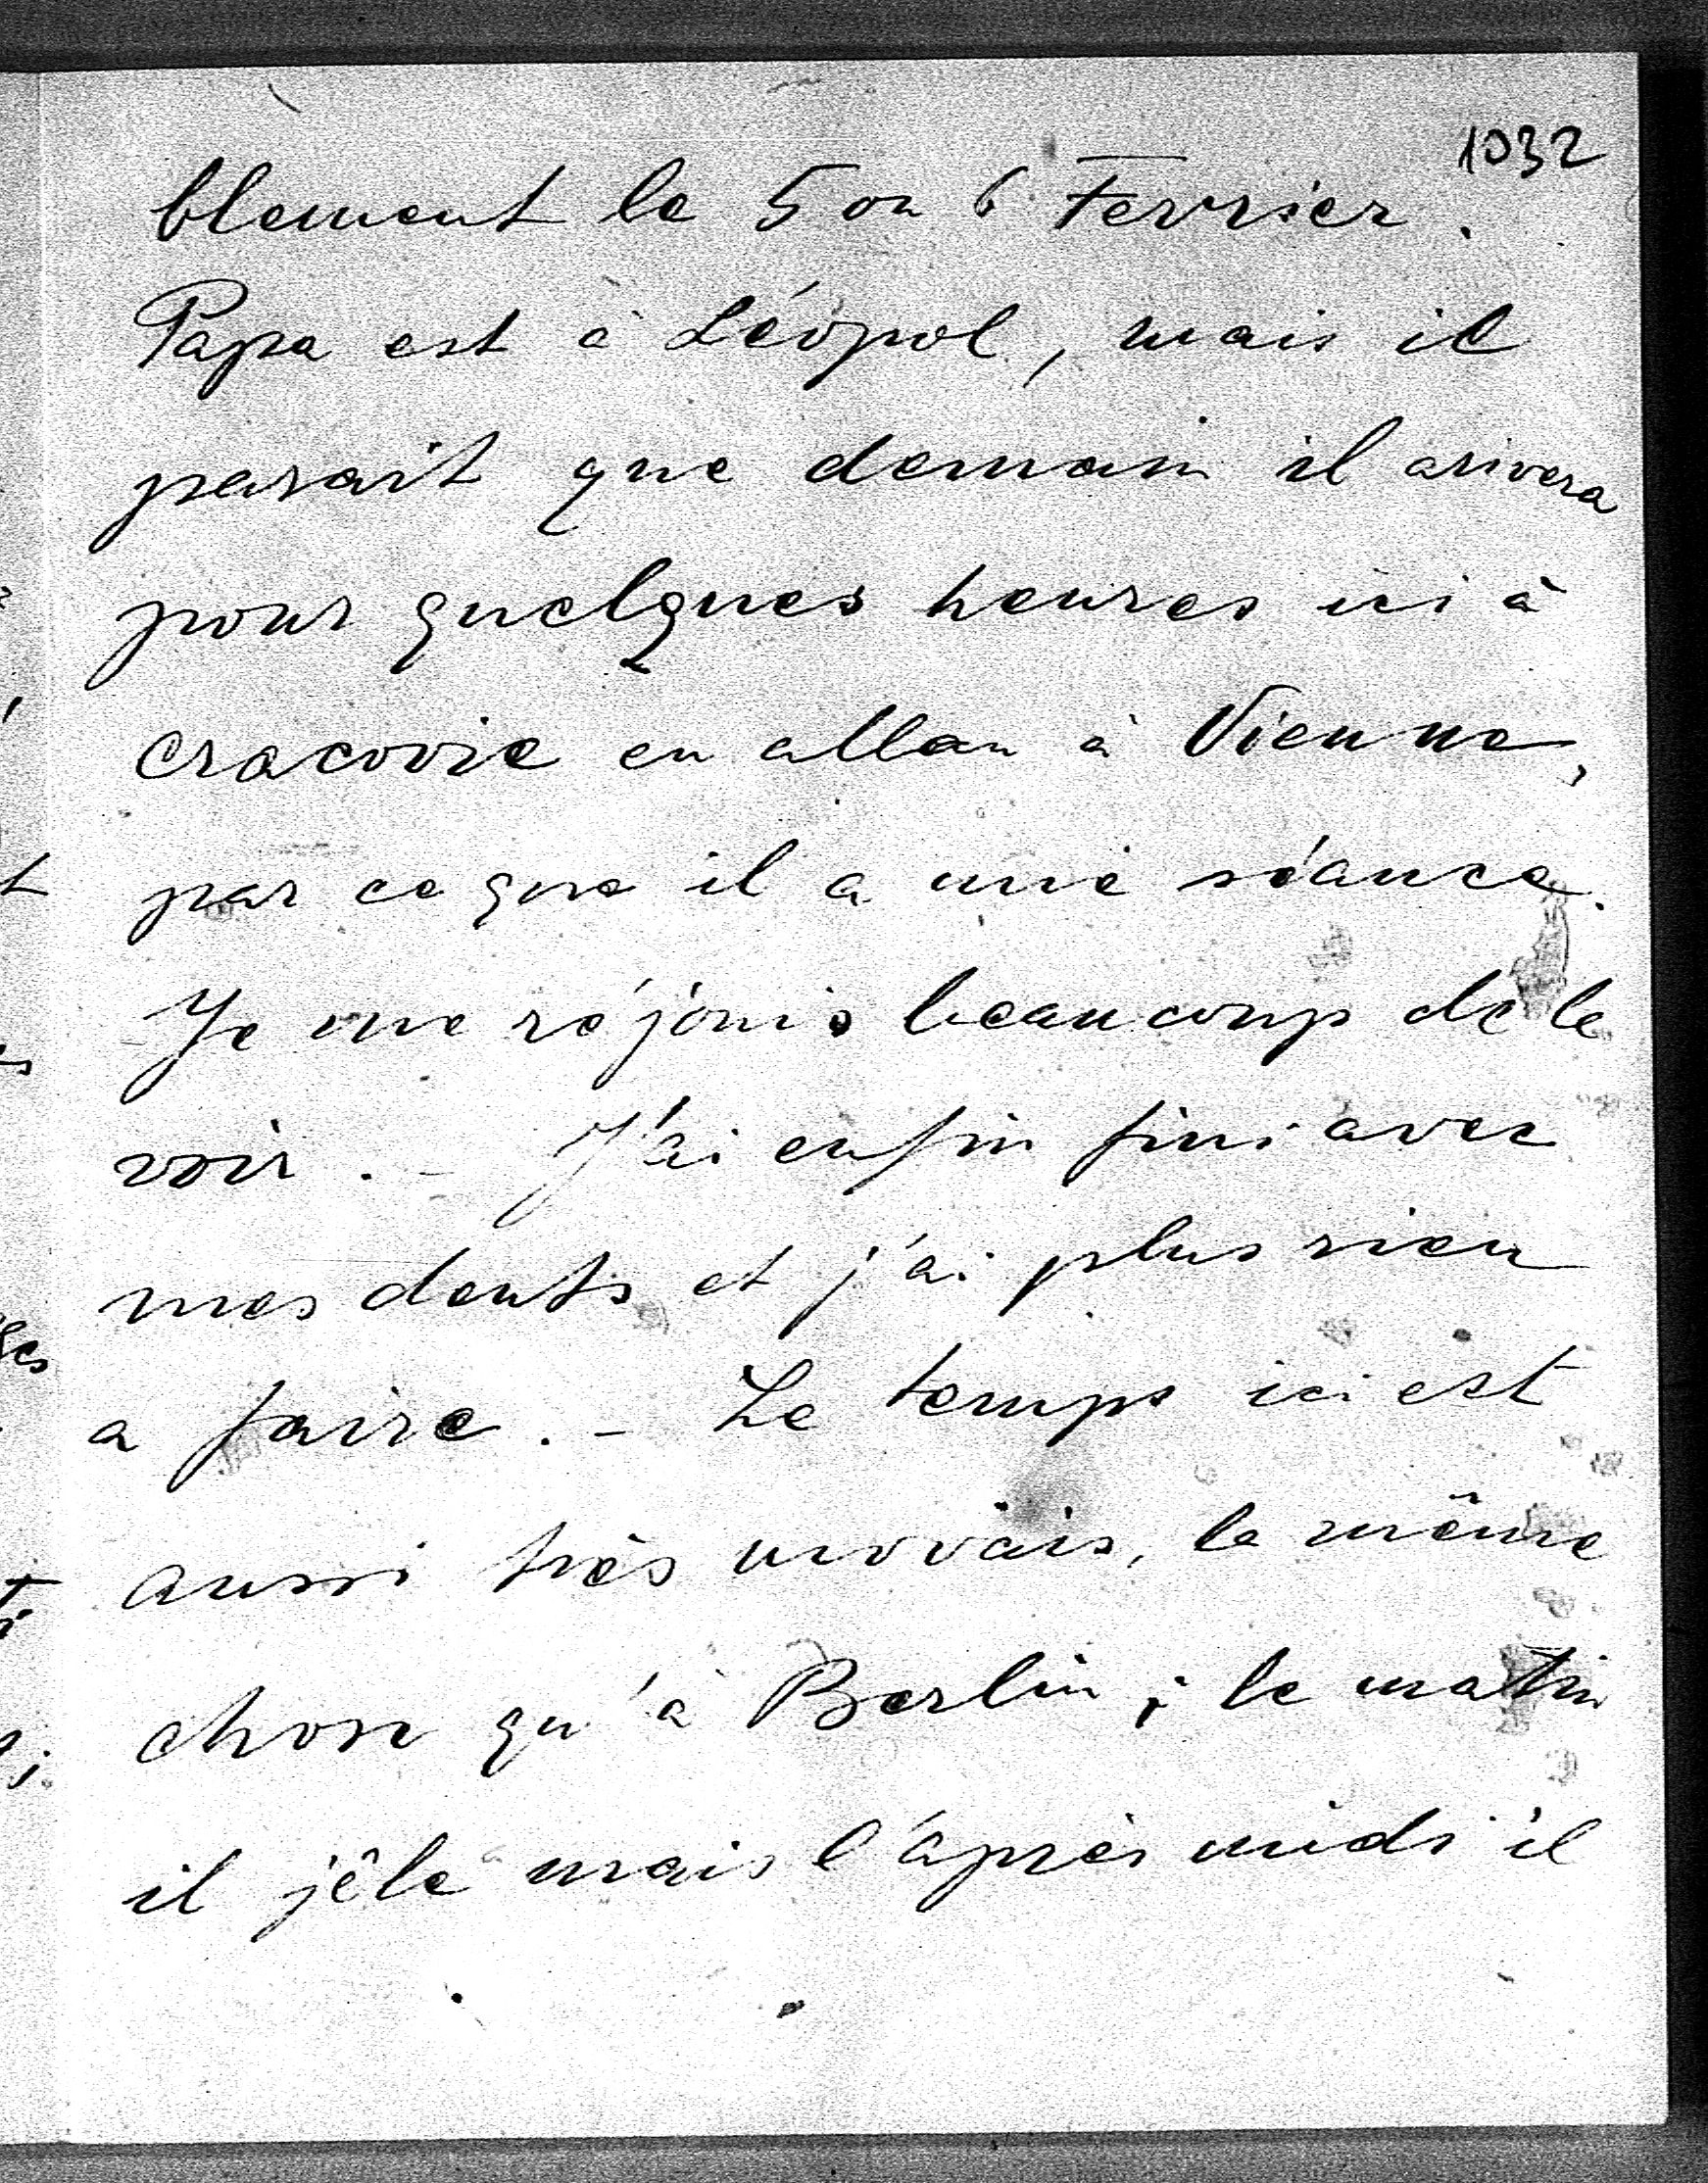 1032
blement le 5 ou 6 Fevrier.
Papa est à Léopol, mais il
parait que demain il arivera
pour quelques heures ici à
Cracovie en allan à Vienne,
par ce que il a une séance.
Je me réjouis beaucoup de le
voir. – J'ai enfin fini avec
mes dents et j'ai plus rien
a faire. – Le temps ici est
aussi très movais, la même
chose qu'à Berlin; le matin
il jêle mais l'après midi il